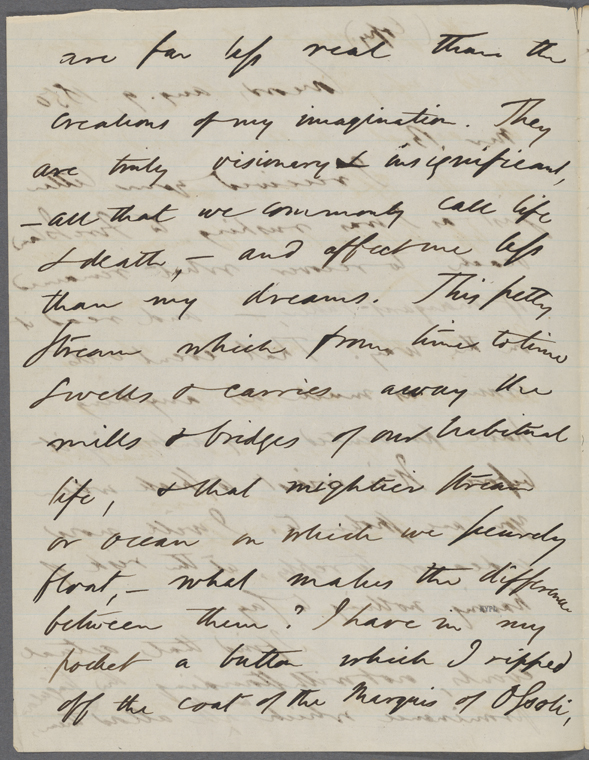 are far less real than the
creations of my imagination. They
are truly visionary & insignificant,
—all that we commonly call life
& death,— and affect me less
than my dreams. This petty
stream which from time to time
swells & carries away the
mills & bridges of our habitual
life, & that mightier stream
or ocean on which we securely
float,— what makes the difference
between them? I have in my
pocket a button which I ripped
off the coat of the Marquis of Ossoli,